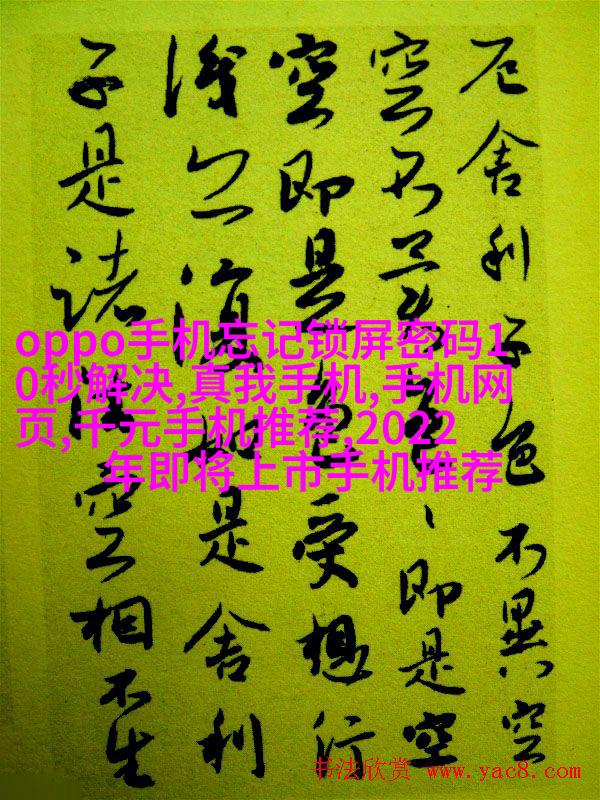 厄舍利子色不異空
空不異色、即是空
空即是色受想行
識亦復如是舍利
子是諸法空相不生
oppo手机忘记锁屏密码1
0秒解决,真我手机,手机网
页,千元手机推荐,2022
年即将上市手机推荐
书法欣赏 www.yac8.com